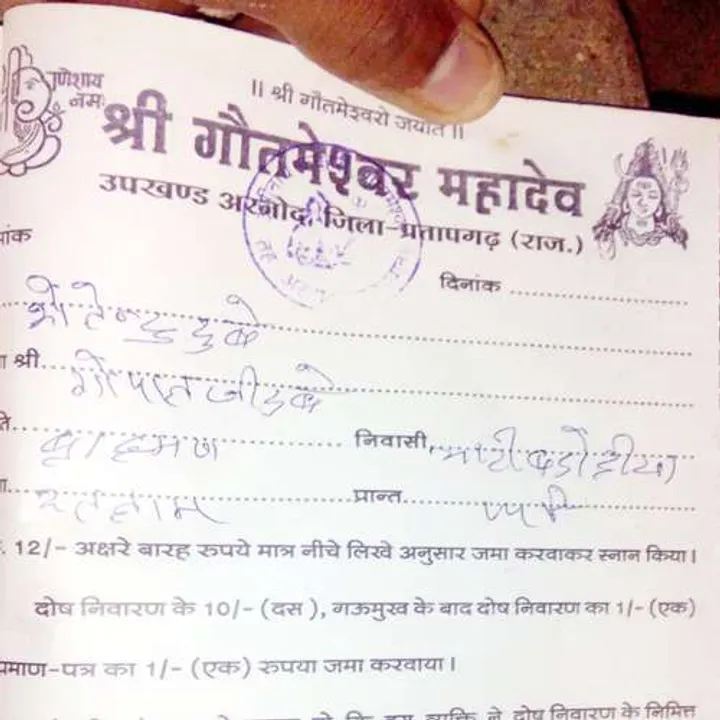 गणेशाय नमः
|| श्री गौतमेश्वरो जयति ||
श्री गौतमेश्वर महादेव
उपखण्ड अरनोद, जिला-प्रतापगढ़ (राज.)
दिनांक ........
श्री........ गोपाल जी दुबे
ब्राह्मण ........ निवासी........
रतलाम ........ प्रान्त........
12/- अक्षरे बारह रुपये मात्र नीचे लिखे अनुसार जमा करवाकर स्नान किया।
दोष निवारण के 10/- (दस), गऊमुख के बाद दोष निवारण का 1/- (एक)
प्रमाण-पत्र का 1/- (एक) रुपया जमा करवाया।
व्यक्ति ने दोष निवारण के निमित्त